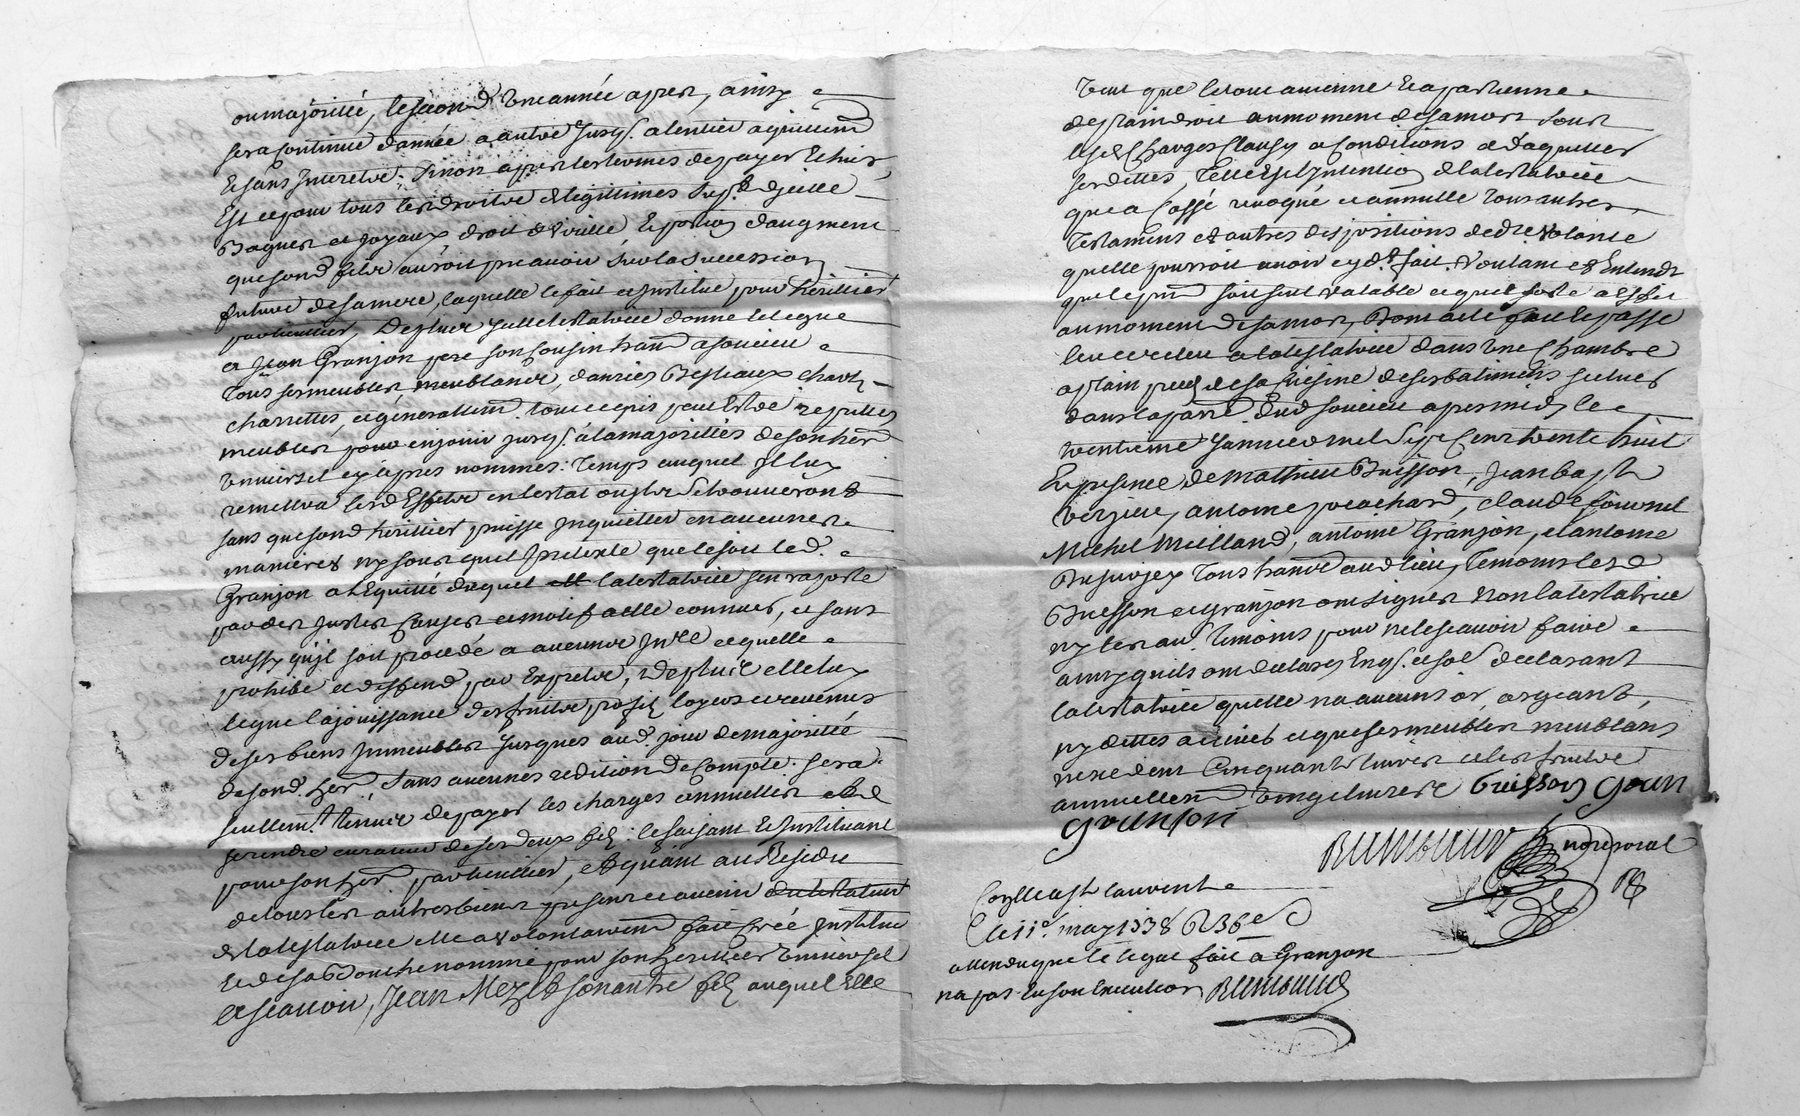 ou majorité, le second une année apres, ainsy
sera continué d'année a autre jusq. a lentier aquittemt
et sans Interetz. Sinon apres les termes de payer echus,
Est ce pour tous les droitz de legitimes
Bagues et joyaux droit de et portion d'augment
que sond. filz auroit peu avoir sur la succession
future de sa mere, laquelle le fait et Institue pour heritier
particulier, Deplus lad. testatrice donne et legue
a Jean Granjon pere son Cousin hant. a
Tous ses meubles meublants, danriés Bestiaux chartz
charrettes, et générallemt. tout ce qui peut estre reputtes
meubles pour en jouir jusq. a la majorittés de son her.
universel cy apres nommés. Temps auquel Il luy
remettra lesd Effetz en lestat ou ilz se trouverons
sans que sond heritier puisse Inquietter en aucunes
manieres ny sous quel pretexte que ce soit led.
Granjon a l'Equitté duquel la testatrice sen raporte
par des justes causes et motif a elle connues, et sans
aussy qu'jl soit procedé a aucune Inre. ce quelle
prohibe et deffend par Exprès, Deplus elle luy
legue la jouissance des fruitz profitz loyers et revenus
de ses biens Immeubles jusques aud. jour de majorité
de sond. her. sans aucunes redition de compte. sera
seullemt. tenue de payer les charges annuelles et de
se rendre curateur de ses deux filz. le faisant et Instituant
pour son her. particullier, et quant au Residu
de tous les autres biens presents et avenir du testateur
de la testatrice elle a volontairemt fait créé Institue
et de sa Bouche nommé pour son heritier universel
et scavoir, Jean Mezle son autre filz auquel Elle
veut que le tout avienne et apartienne
de plain droit au moment de sa mort sous
lesd. Charges clauses et conditions et d'aquitter
ses dettes, Telle Est l'Intention de la testatrice
que a Cassé revoqué et annulle tous autres
Testamens et autres dispositions de dre volonté
quelle pourroit avoir cy dt. fait. Voulant et Entend
que le pnt soit seul valable et quil sorte a effet
au moment de sa mort, Dont acte fait et passé
leu et releu a la testatrice dans une Chambre
a plain pied de sa Cuisine de ses batimens situes
dans la parr. dud apres midy le
trentieme janvier mil sept Cent trente huit
En presence de Mathieu Buisson, Jean bapt.
antoine pocachard, claude fournel
Michel Meilland, antoine Granjon, et antoine
tous hants aud lieu, Temoins lesd
Buisson et Granjon ont signes non la testatrice
ny les au. Temoins pour ne le scavoir faire
ainsy quils ont declaré Enq. et so. declarant
la testatrice quelle na aucuns or, argeant,
ny dettes actives et que ses meubles meublans
nexedent Cinquante livres et les fruitz
annuellemt vingt livres Buisson Jean
granjon
nore royal
Conlle a St laurent
le 11e. may 1738
attendu que le legue fait a Granjon
na pas eu son Execution